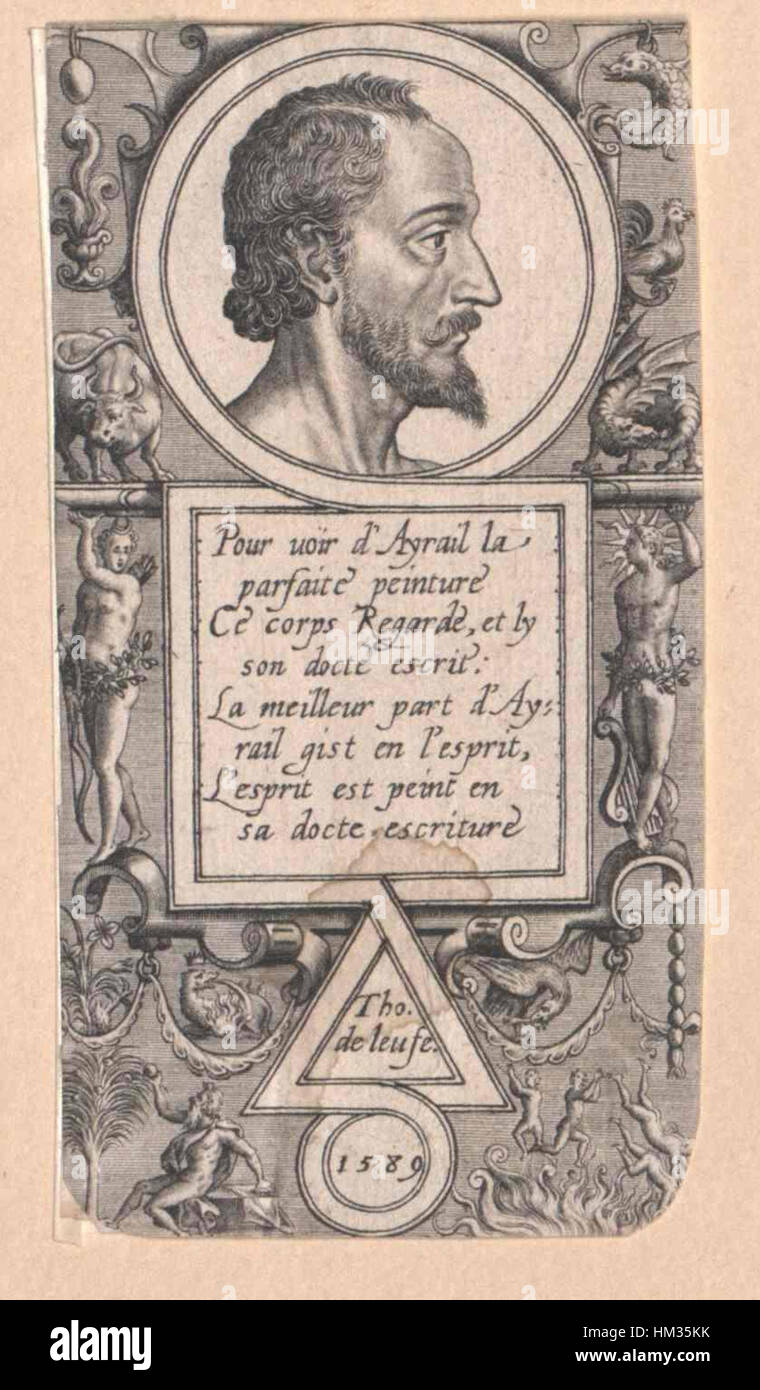 Pour uoir d'Ayrail la
parfaite peinture
Ce corps Regarde, et ly
son docte escrit:
La meilleur part d'Ay:
rail gist en l'esprit,
L'esprit est peint en
sa docte escriture
Tho.
de leufe.
1589
alamy
alamy
Image ID: HM35KK
www.alamy.com